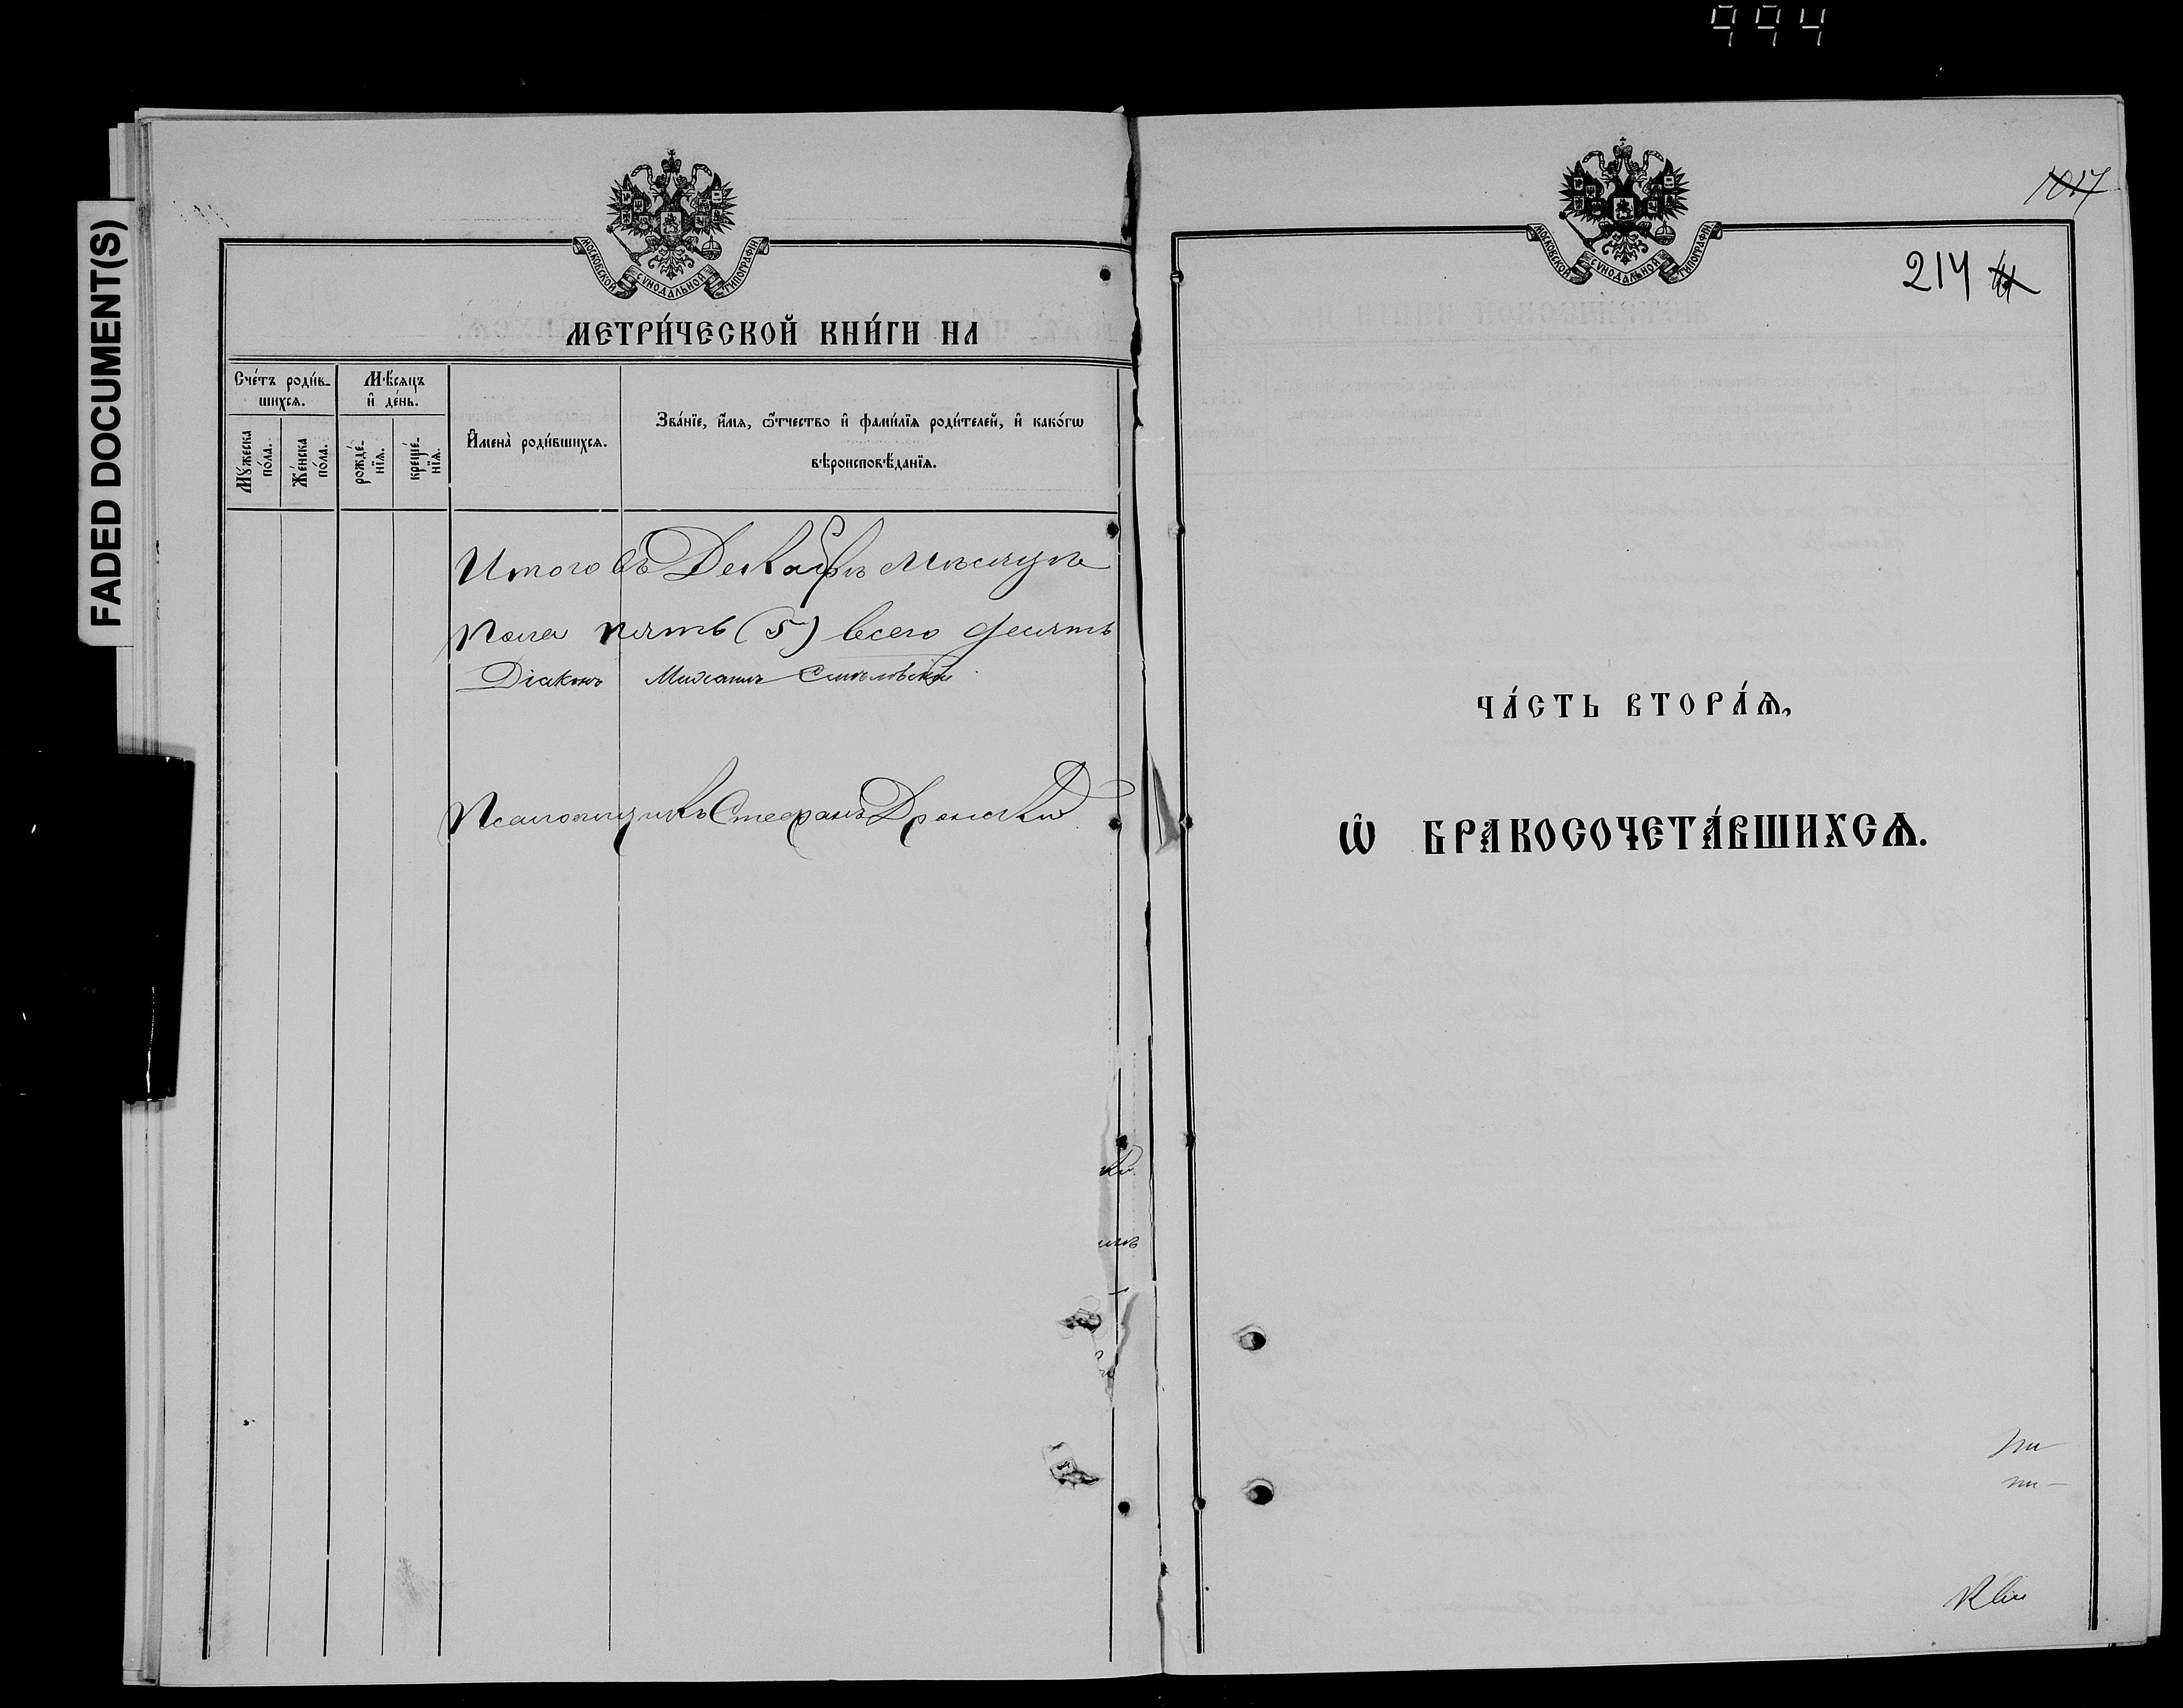 994
FADED DOCUMENT(S)
МОСКОВСКОЙ СѴНОДАЛЬНОЙ ТИПОГРАФІИ
МЕТРИ́ЧЕСКОЙ КНИ́ГИ НА
Сче́тъ роди́в-
шихсѧ.
Мѣ́сѧцъ
и҆ де́нь.
И҆мена̀ роди́вшихсѧ.
Зва́нїе, и҆́мѧ, ѻ҆́тчество и҆ фами́лїѧ роди́телей, и҆ како́гѡ
вѣроисповѣ́данїѧ.
Мꙋ́жеска
по́ла.
Же́нска
по́ла.
рожде́-
нїѧ.
креще́-
нїѧ.
Итого въ Декабрѣ Мѣсяцѣ
Пола пять (5) всего десять
Діаконъ Михаилъ
Псаломщикъ Стефанъ
МОСКОВСКОЙ СѴНОДАЛЬНОЙ ТИПОГРАФІИ
1017
214
ЧА́СТЬ ВТОРА́Ѧ,
Ѡ҆ БРАКОСОЧЕТА́ВШИХСѦ.